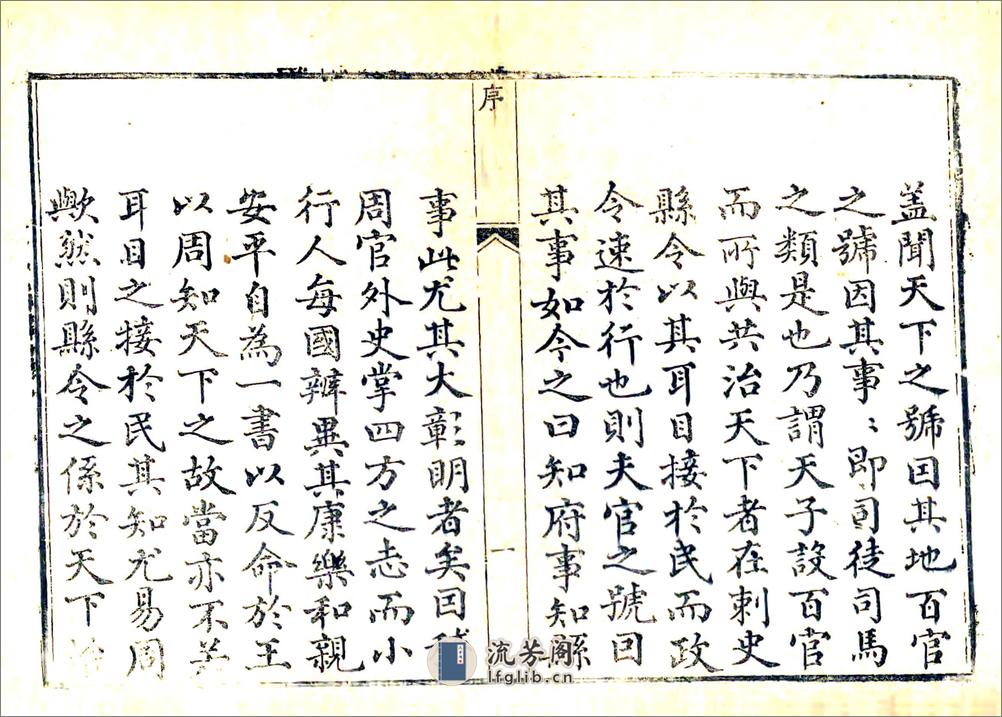 盖聞天下之號因其地百官
之號因其事〻即司徒司馬
之類是也乃謂天子設百官
而所與共治天下者在刺史
縣令以其耳目接於民而政
令速於行也則夫官之號因
其事如今之曰知府事知縣
序
一
事此尤其大彰明者矣因
周官外史掌四方之志而小
行人每國辨異其康樂和親
安平自為一書以反命於王
以周知天下之故當亦不
耳目之接於民其知尤易周
歟然則縣令之係於天下
流芳阁
lfglib.cn